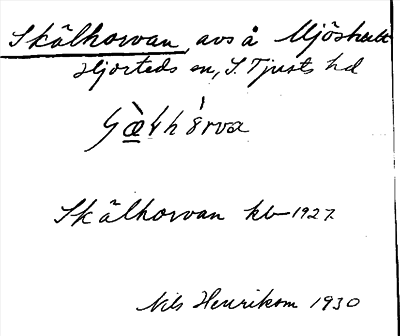 Skälhorvan, avs å Mjöshult
Hjorteds sn, S. Tjusts hd
Skälhorvan kb 1927.
Nils Henrikson 1930